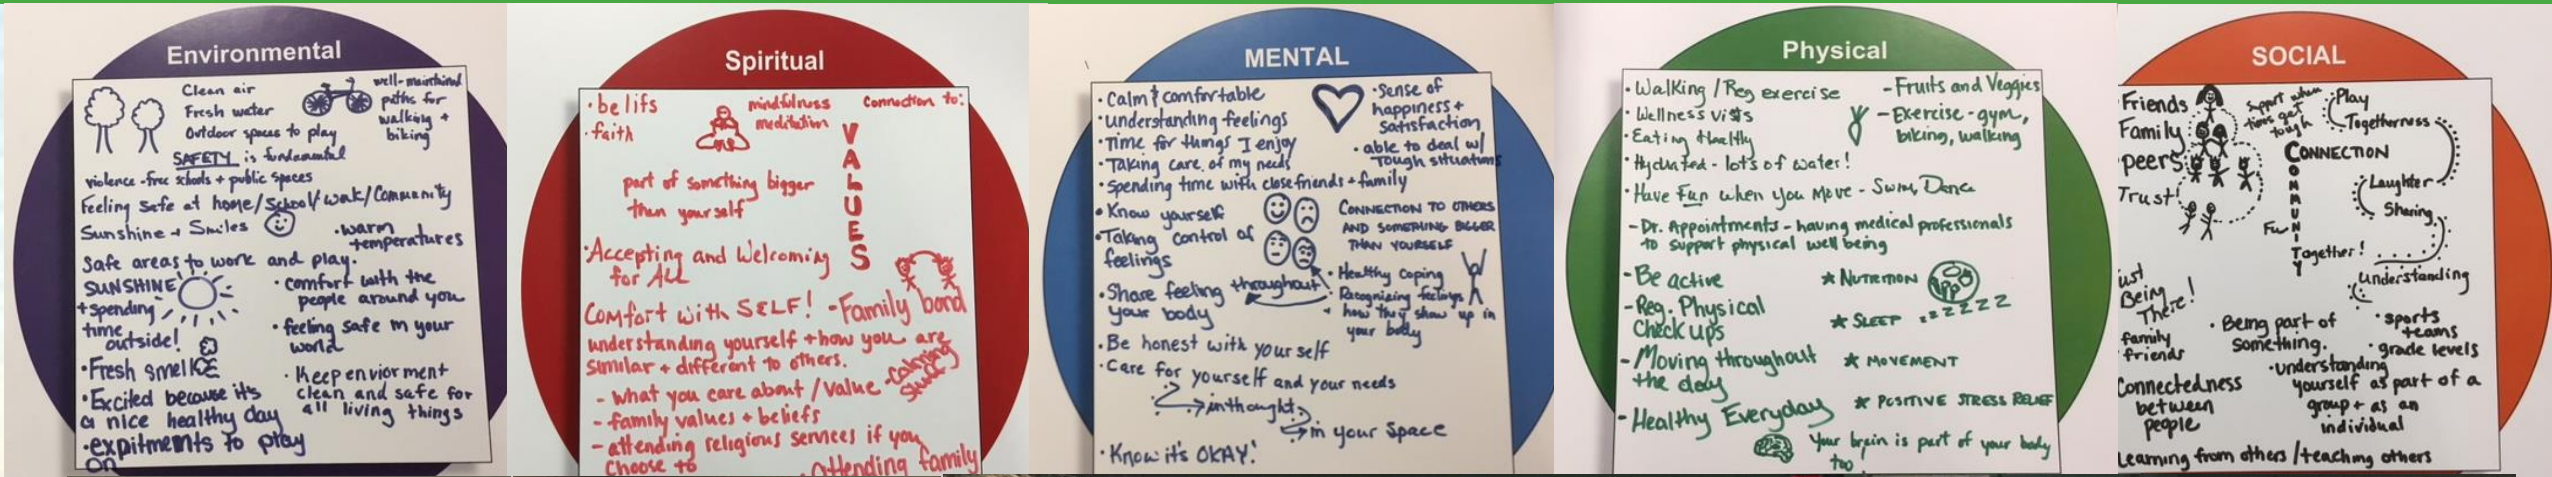 Environmental
Clean air
Fresh water
Outdoor spaces to play
well-maintained
paths for
walking +
biking
SAFETY is fundamental
violence-free schools + public spaces
Feeling safe at home/school/work/community
Sunshine + Smiles
• warm
temperatures
Safe areas to work and play.
SUNSHINE
+ spending
time
outside!
• comfort with the
people around you
• feeling safe in your
world
• Fresh smell
• Excited because it's
a nice healthy day
• Keep enviorment
clean and safe for
all living things
• expitments to play
on
Spiritual
• belifs
• faith
mindfulness
meditation
Connection to:
VALUES
part of something bigger
than yourself
• Accepting and Welcoming
for All
Comfort with SELF!
- Family bond
understanding yourself + how you are
similar + different to others.
- calming
- what you care about / value
- family values + beliefs
- attending religious services if you
choose to
• attending family
MENTAL
• Calm & comfortable
• understanding feelings
• Time for things I enjoy
• Taking care of my needs
• spending time with close friends + family
• Sense of
happiness +
satisfaction
• able to deal w/
tough situations
• Know yourself
• Taking control of
feelings
CONNECTION TO OTHERS
AND SOMETHING BIGGER
THAN YOURSELF
• Share feeling throughout
your body
• Healthy coping
• Recognizing feelings
+ how they show up in
your body
• Be honest with yourself
• Care for yourself and your needs
in thought
in your space
• Know it's OKAY!
Physical
• Walking / Reg exercise
• Wellness visits
• Eating Healthy
• Hydrated - lots of water!
• Have Fun when you move - Swim, Dance
- Fruits and Veggies
- Exercise - gym,
biking, walking
- Dr. Appointments - having medical professionals
to support physical well being
- Be active
- Reg. Physical
Check ups
- Moving throughout
the day
- Healthy Everyday
★ NUTRITION
★ SLEEP zzzzzz
★ MOVEMENT
★ POSITIVE STRESS RELIEF
Your brain is part of your body
too!
SOCIAL
Friends
Family
peers
Trust
Support when
times get
tough
Play
Togetherness
CONNECTION
COMMUNITY
Laughter
Sharing
Fun
Together!
Understanding
Just
Being
There!
family
friends
Connectedness
between
people
• Being part of
something.
• sports
teams
• grade levels
• understanding
yourself as part of a
group + as an
individual
Learning from others / teaching others